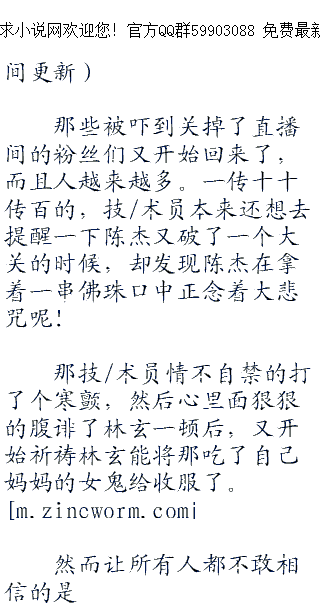 求小说网欢迎您! 官方QQ群59903088 免费最新
间更新）
那些被吓到关掉了直播
间的粉丝们又开始回来了，
而且人越来越多。一传十十
传百的，技/术员本来还想去
提醒一下陈杰又破了一个大
关的时候，却发现陈杰在拿
着一串佛珠口中正念着大悲
咒呢!
那技/术员情不自禁的打
了个寒颤，然后心里面狠狠
的腹诽了林玄一顿后，又开
始祈祷林玄能将那吃了自己
妈妈的女鬼给收服了。
[m.zincworm.com]
然而让所有人都不敢相
信的是